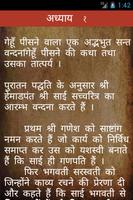 1:42
अध्याय १
गेहूँ पीसने वाला एक अद्भुत सन्त
वन्दना गेहूँ पीसने की कथा तथा
उसका तात्पर्य ।
पुरातन पद्घति के अनुसार श्री
हेमाडपंत श्री साई सच्चरित्र का
आरम्भ वन्दना करते हैं ।
प्रथम श्री गणेश को साष्टांग
नमन करते हैं, जो कार्य को निर्विघ
समाप्त कर उस को यशस्वी बनाते
हैं कि साई ही गणपति हैं ।
फिर भगवती सरस्वती को
जिन्होंने काव्य रचने की प्रेरणा दी
और कहते हैं कि साई भगवती से